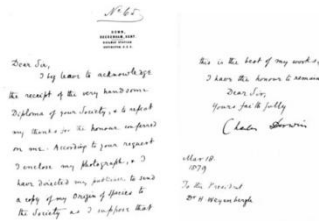 No 65.
DOWN,
BECKENHAM, KENT.
RAILWAY STATION
ORPINGTON. S.E.R.
Dear Sir,
I beg leave to acknowledge
the receipt of the very handsome
Diploma of your Society, & to repeat
my thanks for the honour conferred
on me. According to your request
I enclose my photograph, & I
have directed my publisher to send
a copy of my Origin of Species to
the Society as I suppose that
this is the best of my works,
I have the honour to remain
Dear Sir,
Yours faithfully
Charles Darwin
Mar 18.
1879
To the President
Dr H. Weyenbergh